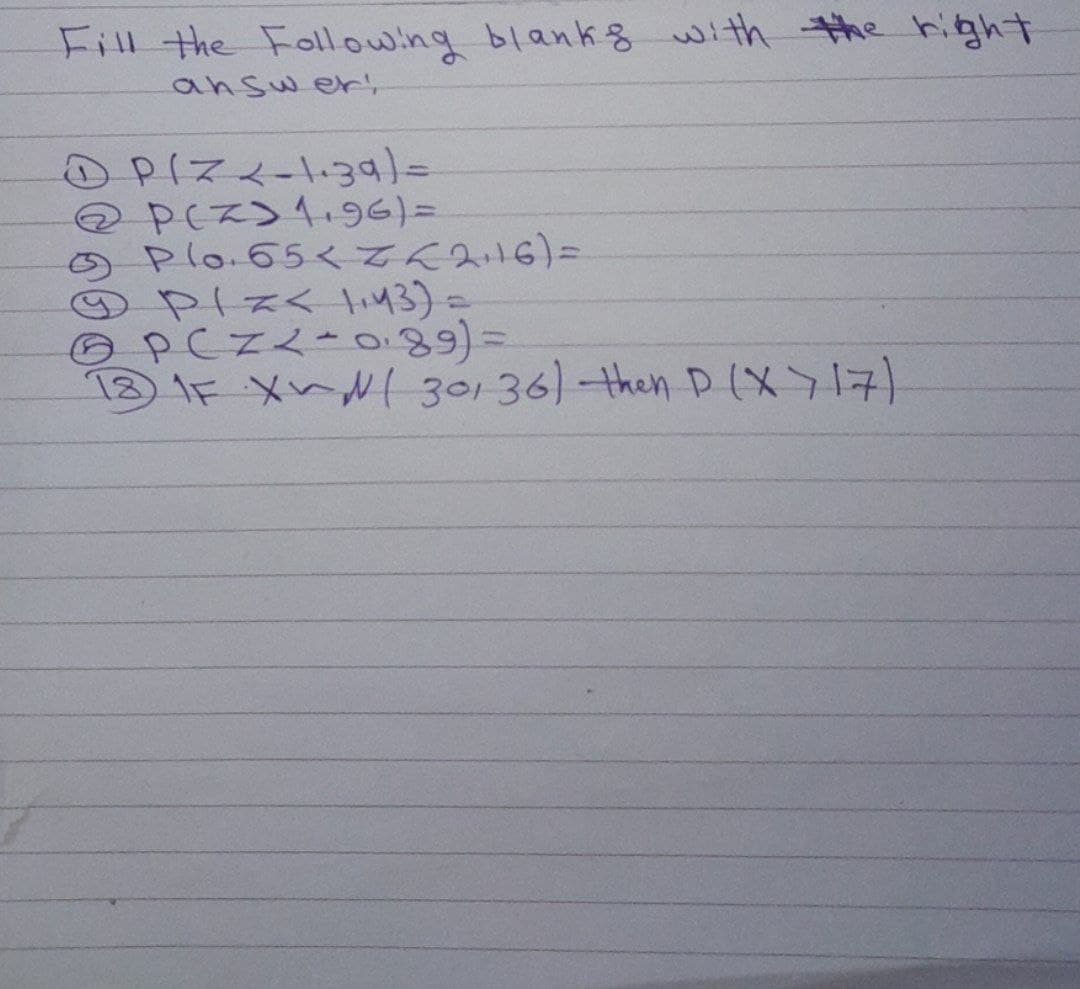 Fill the Following blanks with the right
answer:
① P(Z<-1.39)=
② P(Z>1.96)=
③ P(0.65<Z<2.16)=
④ P(Z<1.43)=
⑤ P(Z<-0.89)=
⑱ IF X~N(30,36) then P(X>17)